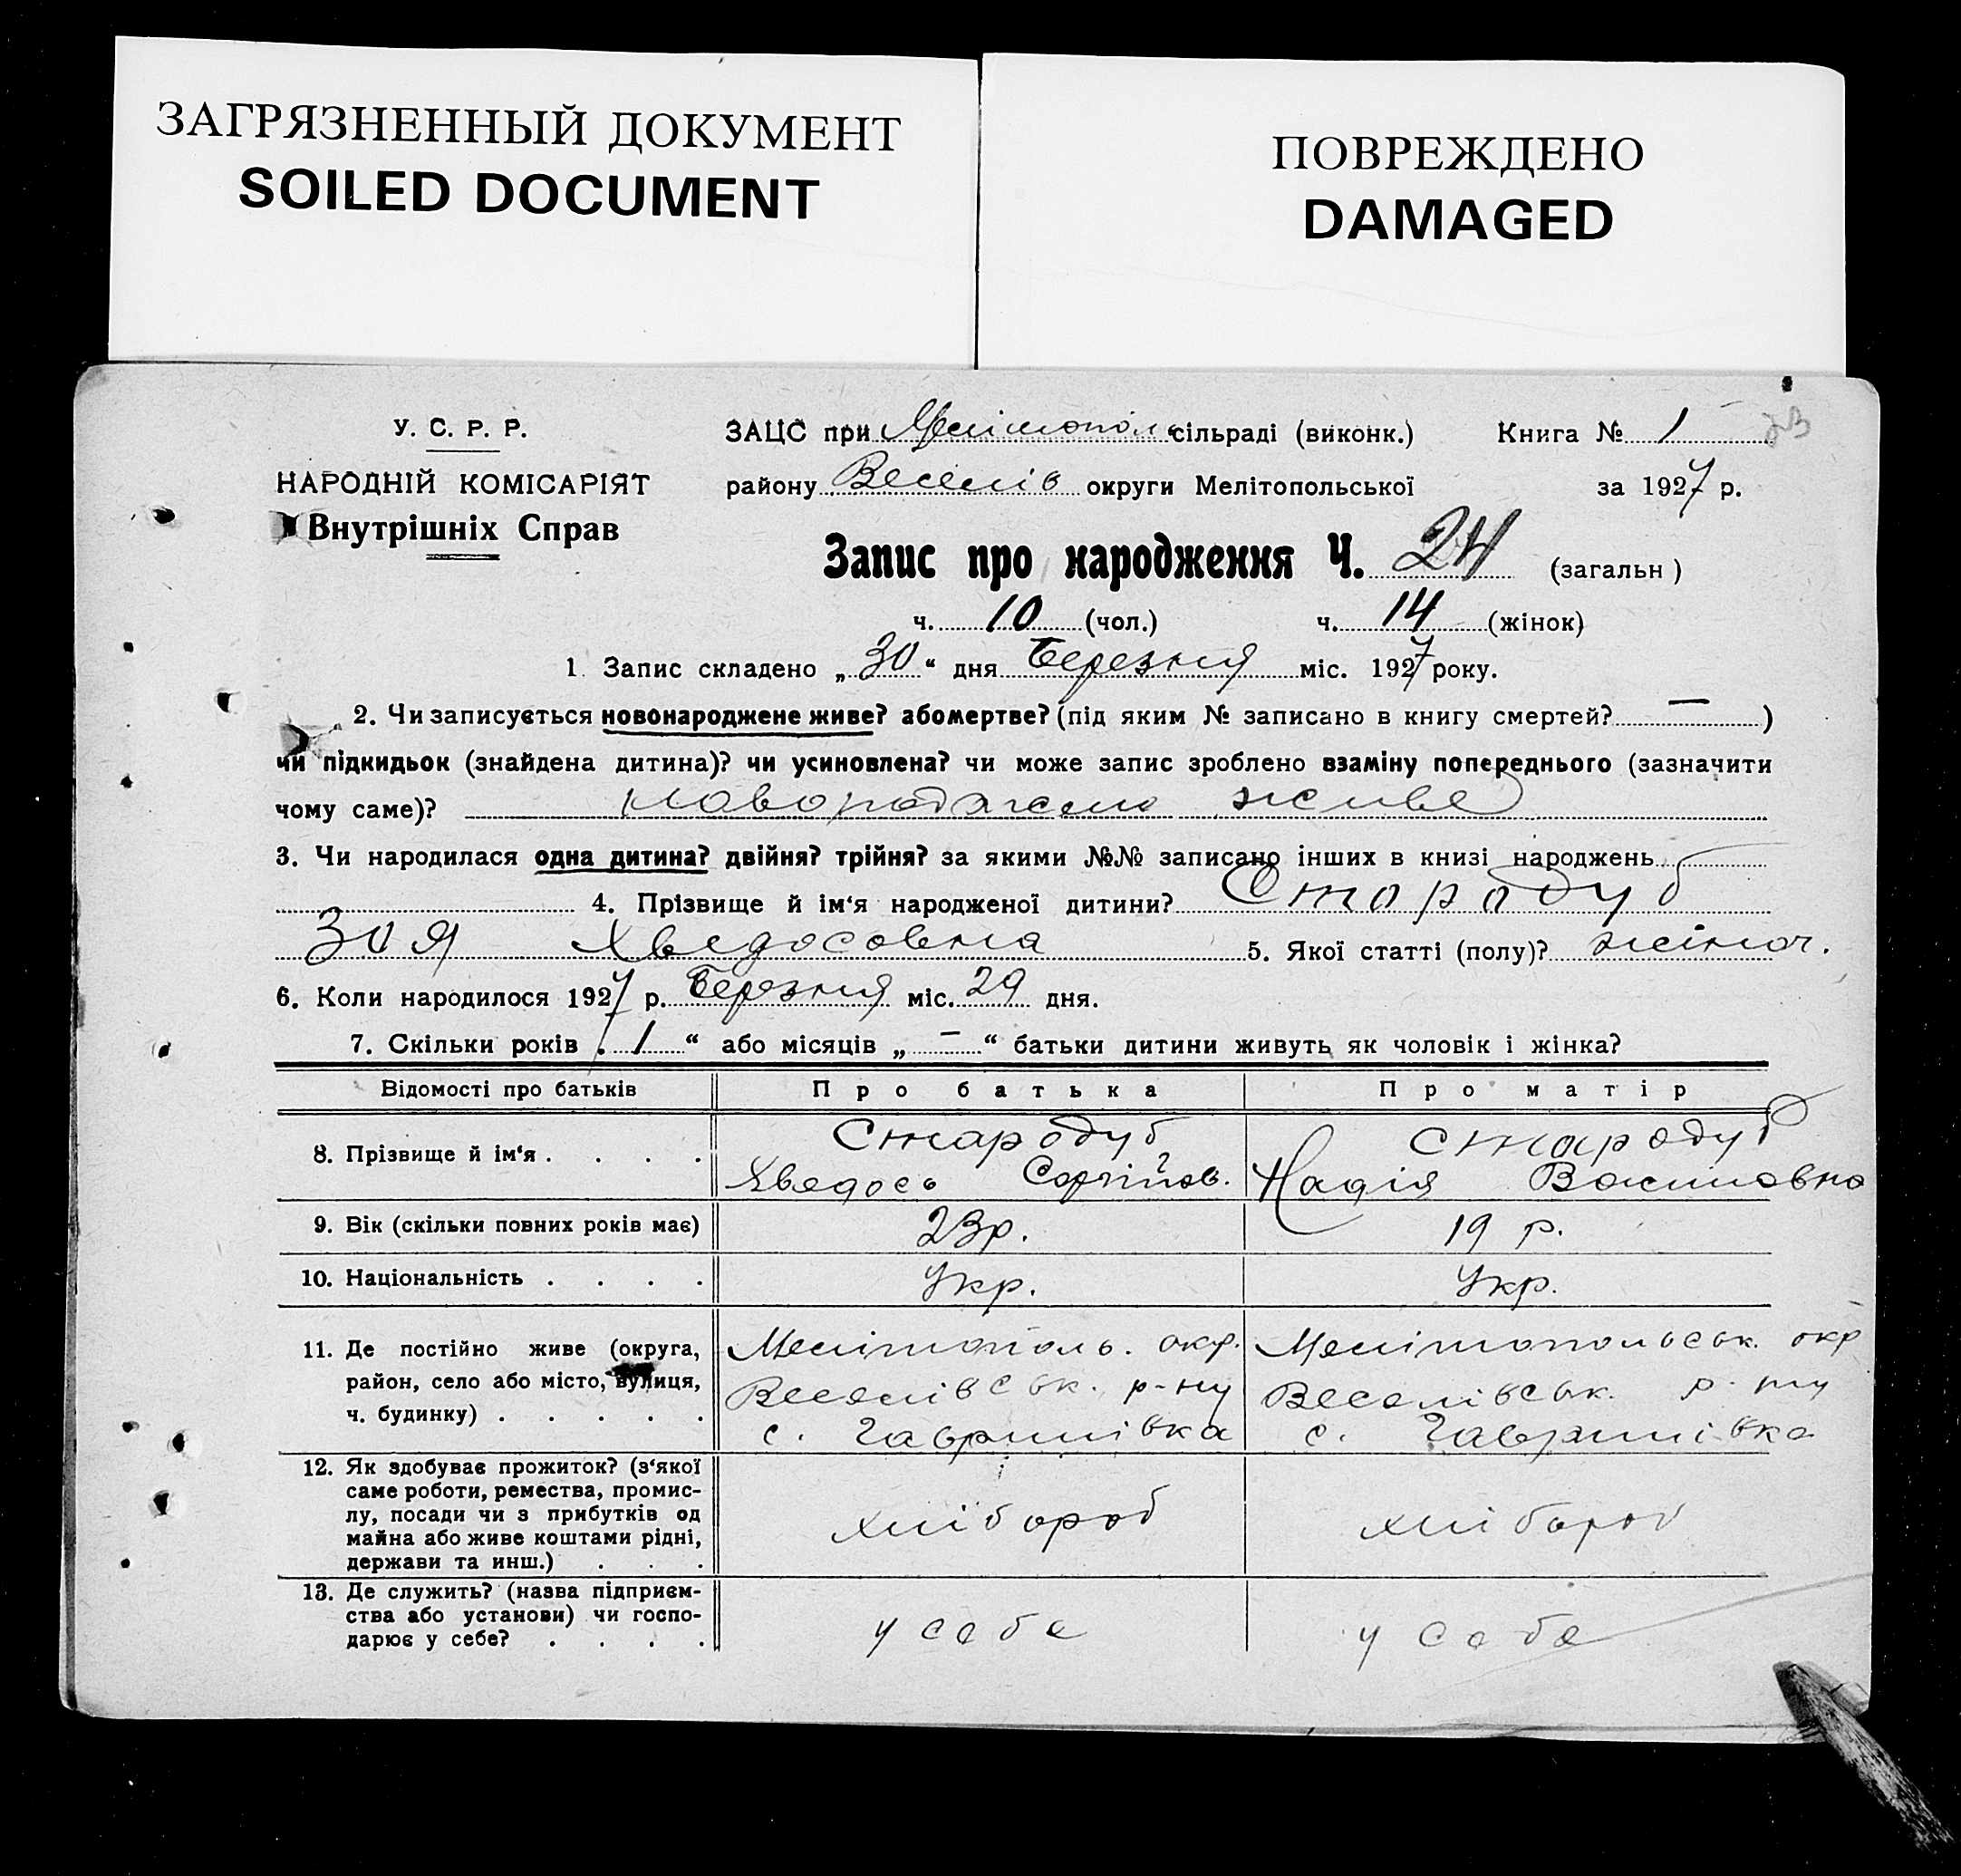 ЗАГРЯЗНЕННЫЙ ДОКУМЕНТ
SOILED DOCUMENT
ПОВРЕЖДЕНО
DAMAGED
У. С. Р. Р.
НАРОДНІЙ КОМІСАРІЯТ
Внутрішніх Справ
ЗАЦС при Мелітополь сільраді (виконк.) Книга № 1
району Веселів округи Мелітопольської за 1927 р.
Запис про народження Ч. 24 (загальн)
ч. 10 (чол.) ч. 14 (жінок)
1. Запис складено „30“ дня Березня міс. 1927 року.
2. Чи записується новонароджене живе? або мертве? (під яким № записано в книгу смертей? — )
чи підкидьок (знайдена дитина)? чи усиновлена? чи може запис зроблено взаміну попереднього (зазначити
чому саме)? живе
3. Чи народилася одна дитина? двійня? трійня? за якими №№ записано інших в книзі народжень
4. Прізвище й ім‘я народженої дитини? Стародуб
Зоя Хведосовна 5. Якої статті (полу)? жіноч.
6. Коли народилося 1927 р. Березня міс. 29 дня.
7. Скільки років „1“ або місяців „—“ батьки дитини живуть як чоловік і жінка?
Відомості про батьків Про батька Про матір
8. Прізвище й ім‘я . . . . Стародуб Стародуб
Хведось Сергійов. Надія Василовна
9. Вік (скільки повних років має) 23р. 19 р.
10. Національність . . . . Укр. Укр.
11. Де постійно живе (округа, Мелітополь. окр. Мелітопольськ. окр
район, село або місто, вулиця, Веселівськ. р-ну Веселівськ. р-ну
ч. будинку) . . . . . с. Гаврилівка с. Гаврилівка
12. Як здобуває прожиток? (з‘якої
саме роботи, ремества, промис-
лу, посади чи з прибутків од хлібороб хлібороб
майна або живе коштами рідні,
держави та инш.) . . .
13. Де служить? (назва підприєм-
ства або установи) чи госпо- у себе у себе
дарює у себе? . . . .